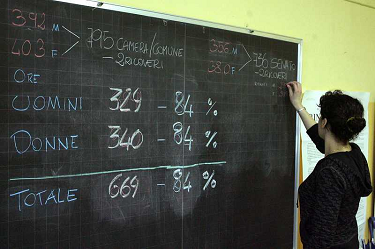 392 M
403 F
795 CAMERA/COMUNE
- 2 RICOVERI
356 M
380 F
736 SENATO
- 2 RICOVERI
ORE
UOMINI 329 - 84 %
DONNE 340 - 84 %
TOTALE 669 - 84 %